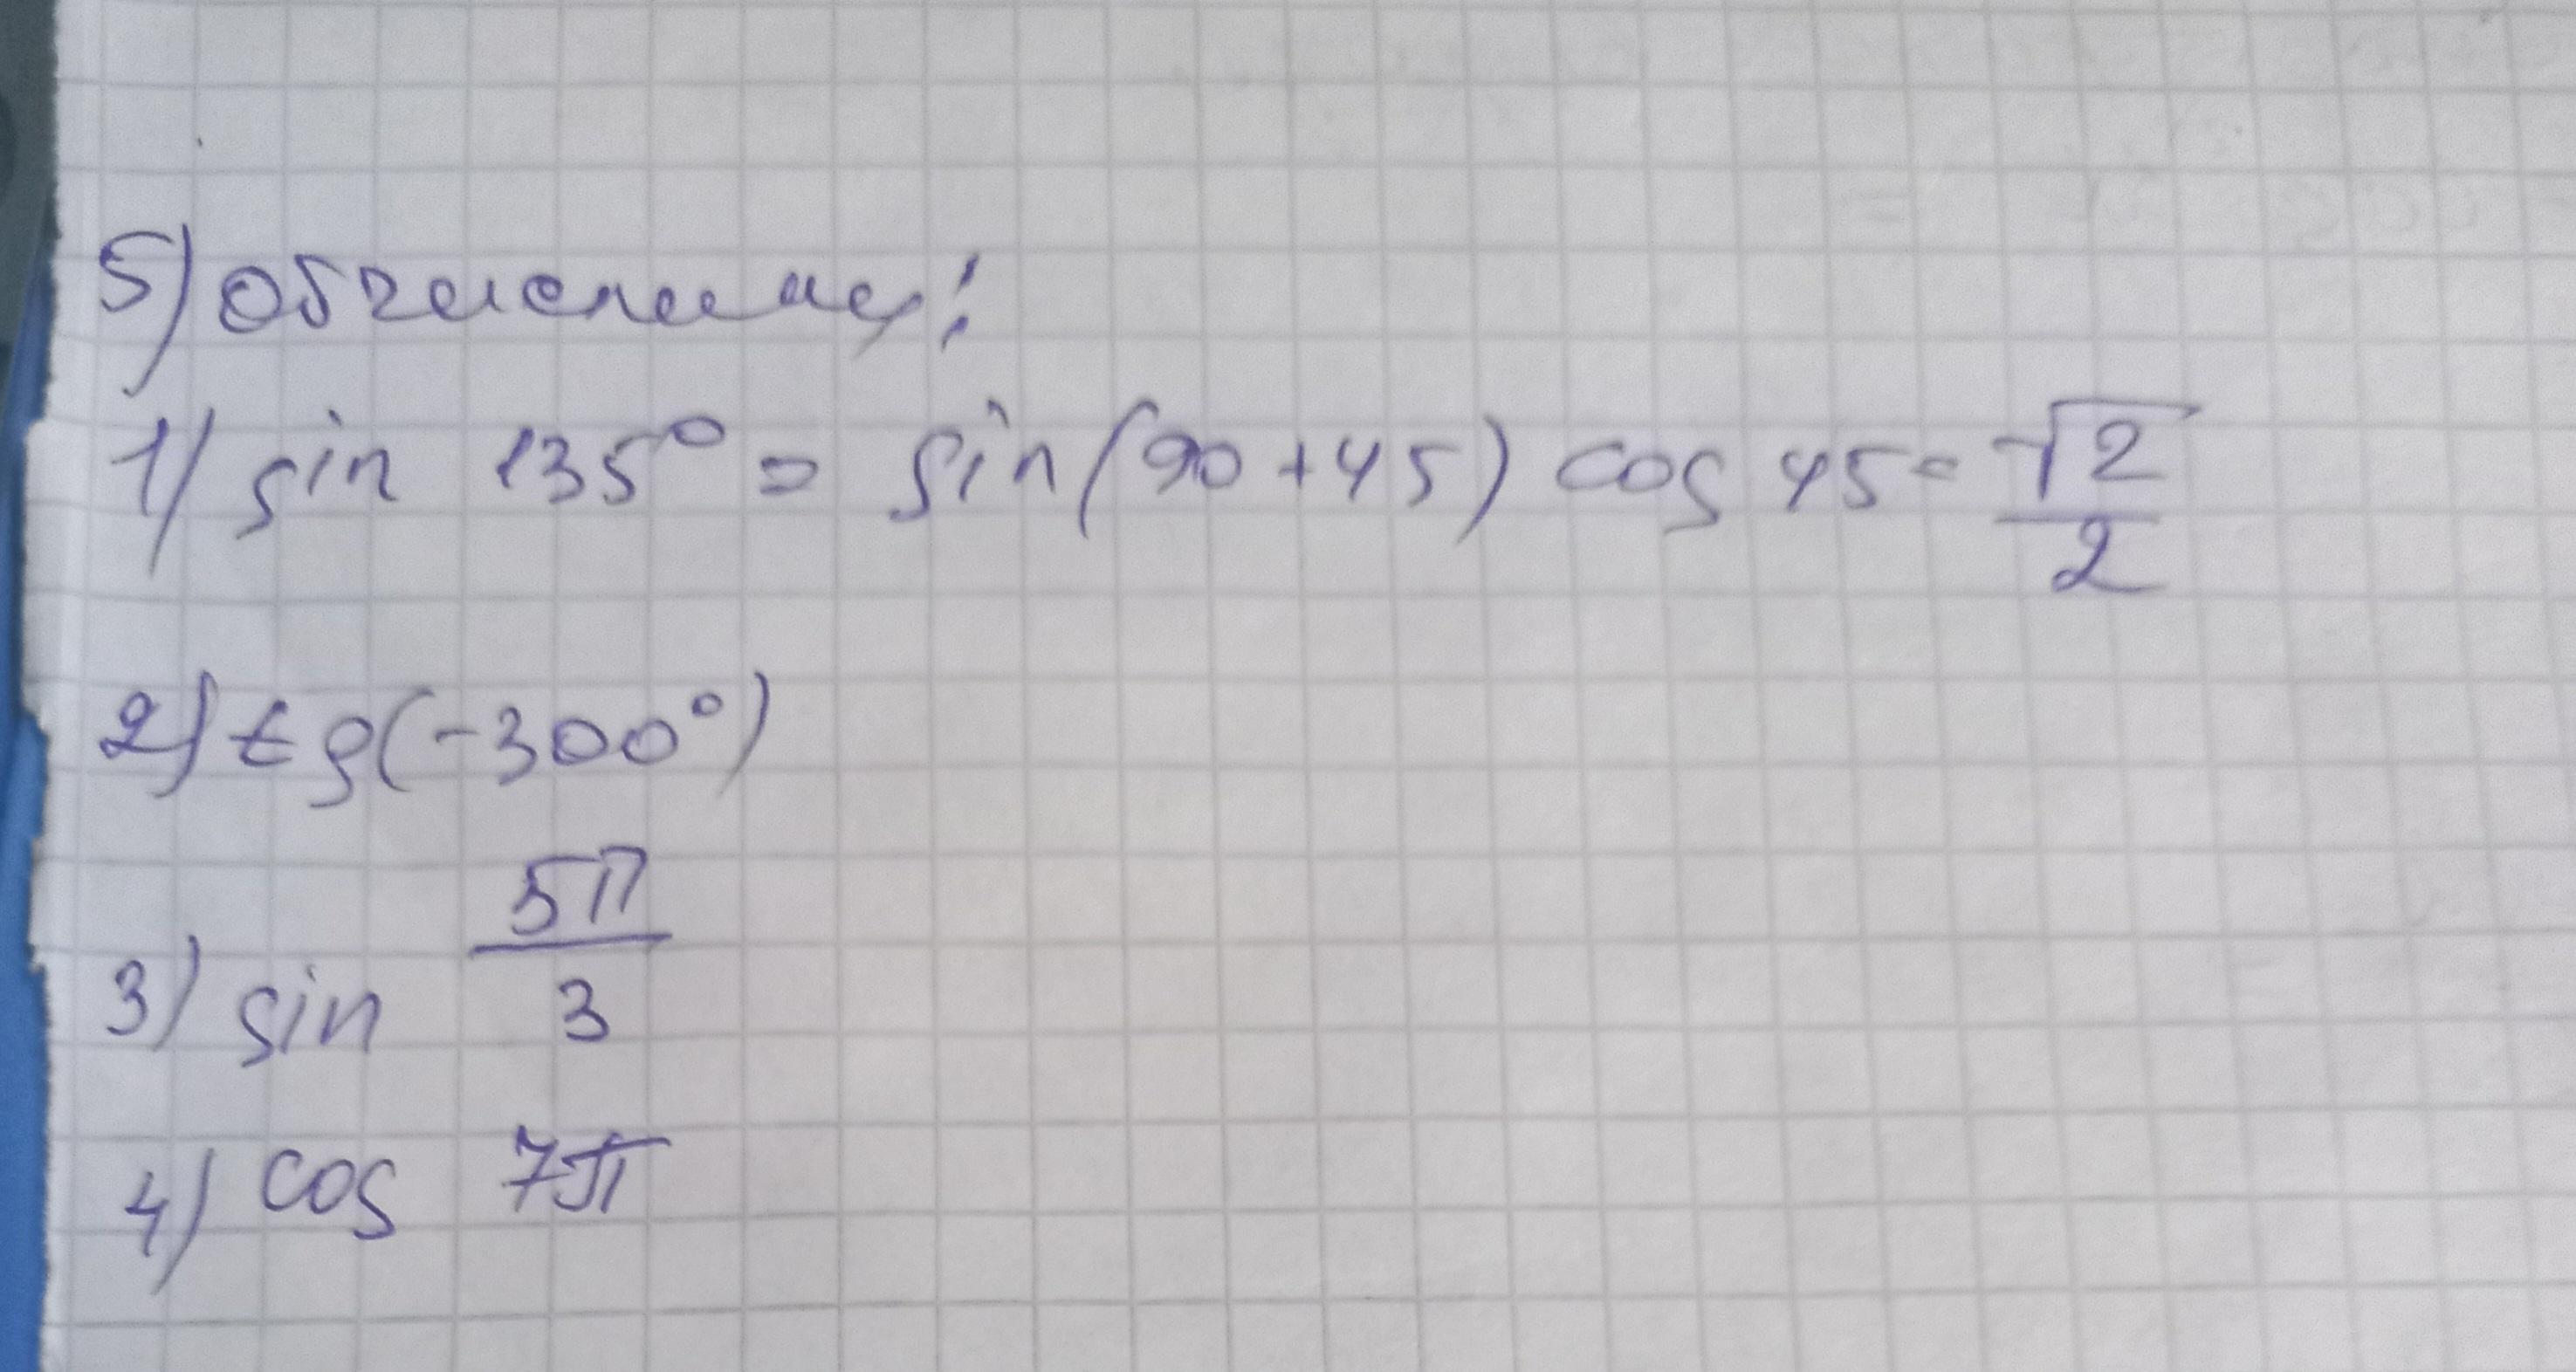 5) обчислити:
1) sin 135° = sin(90+45) cos 45 = √2/2
2) tg(-300°)
3) sin 5π/3
4) cos 7π